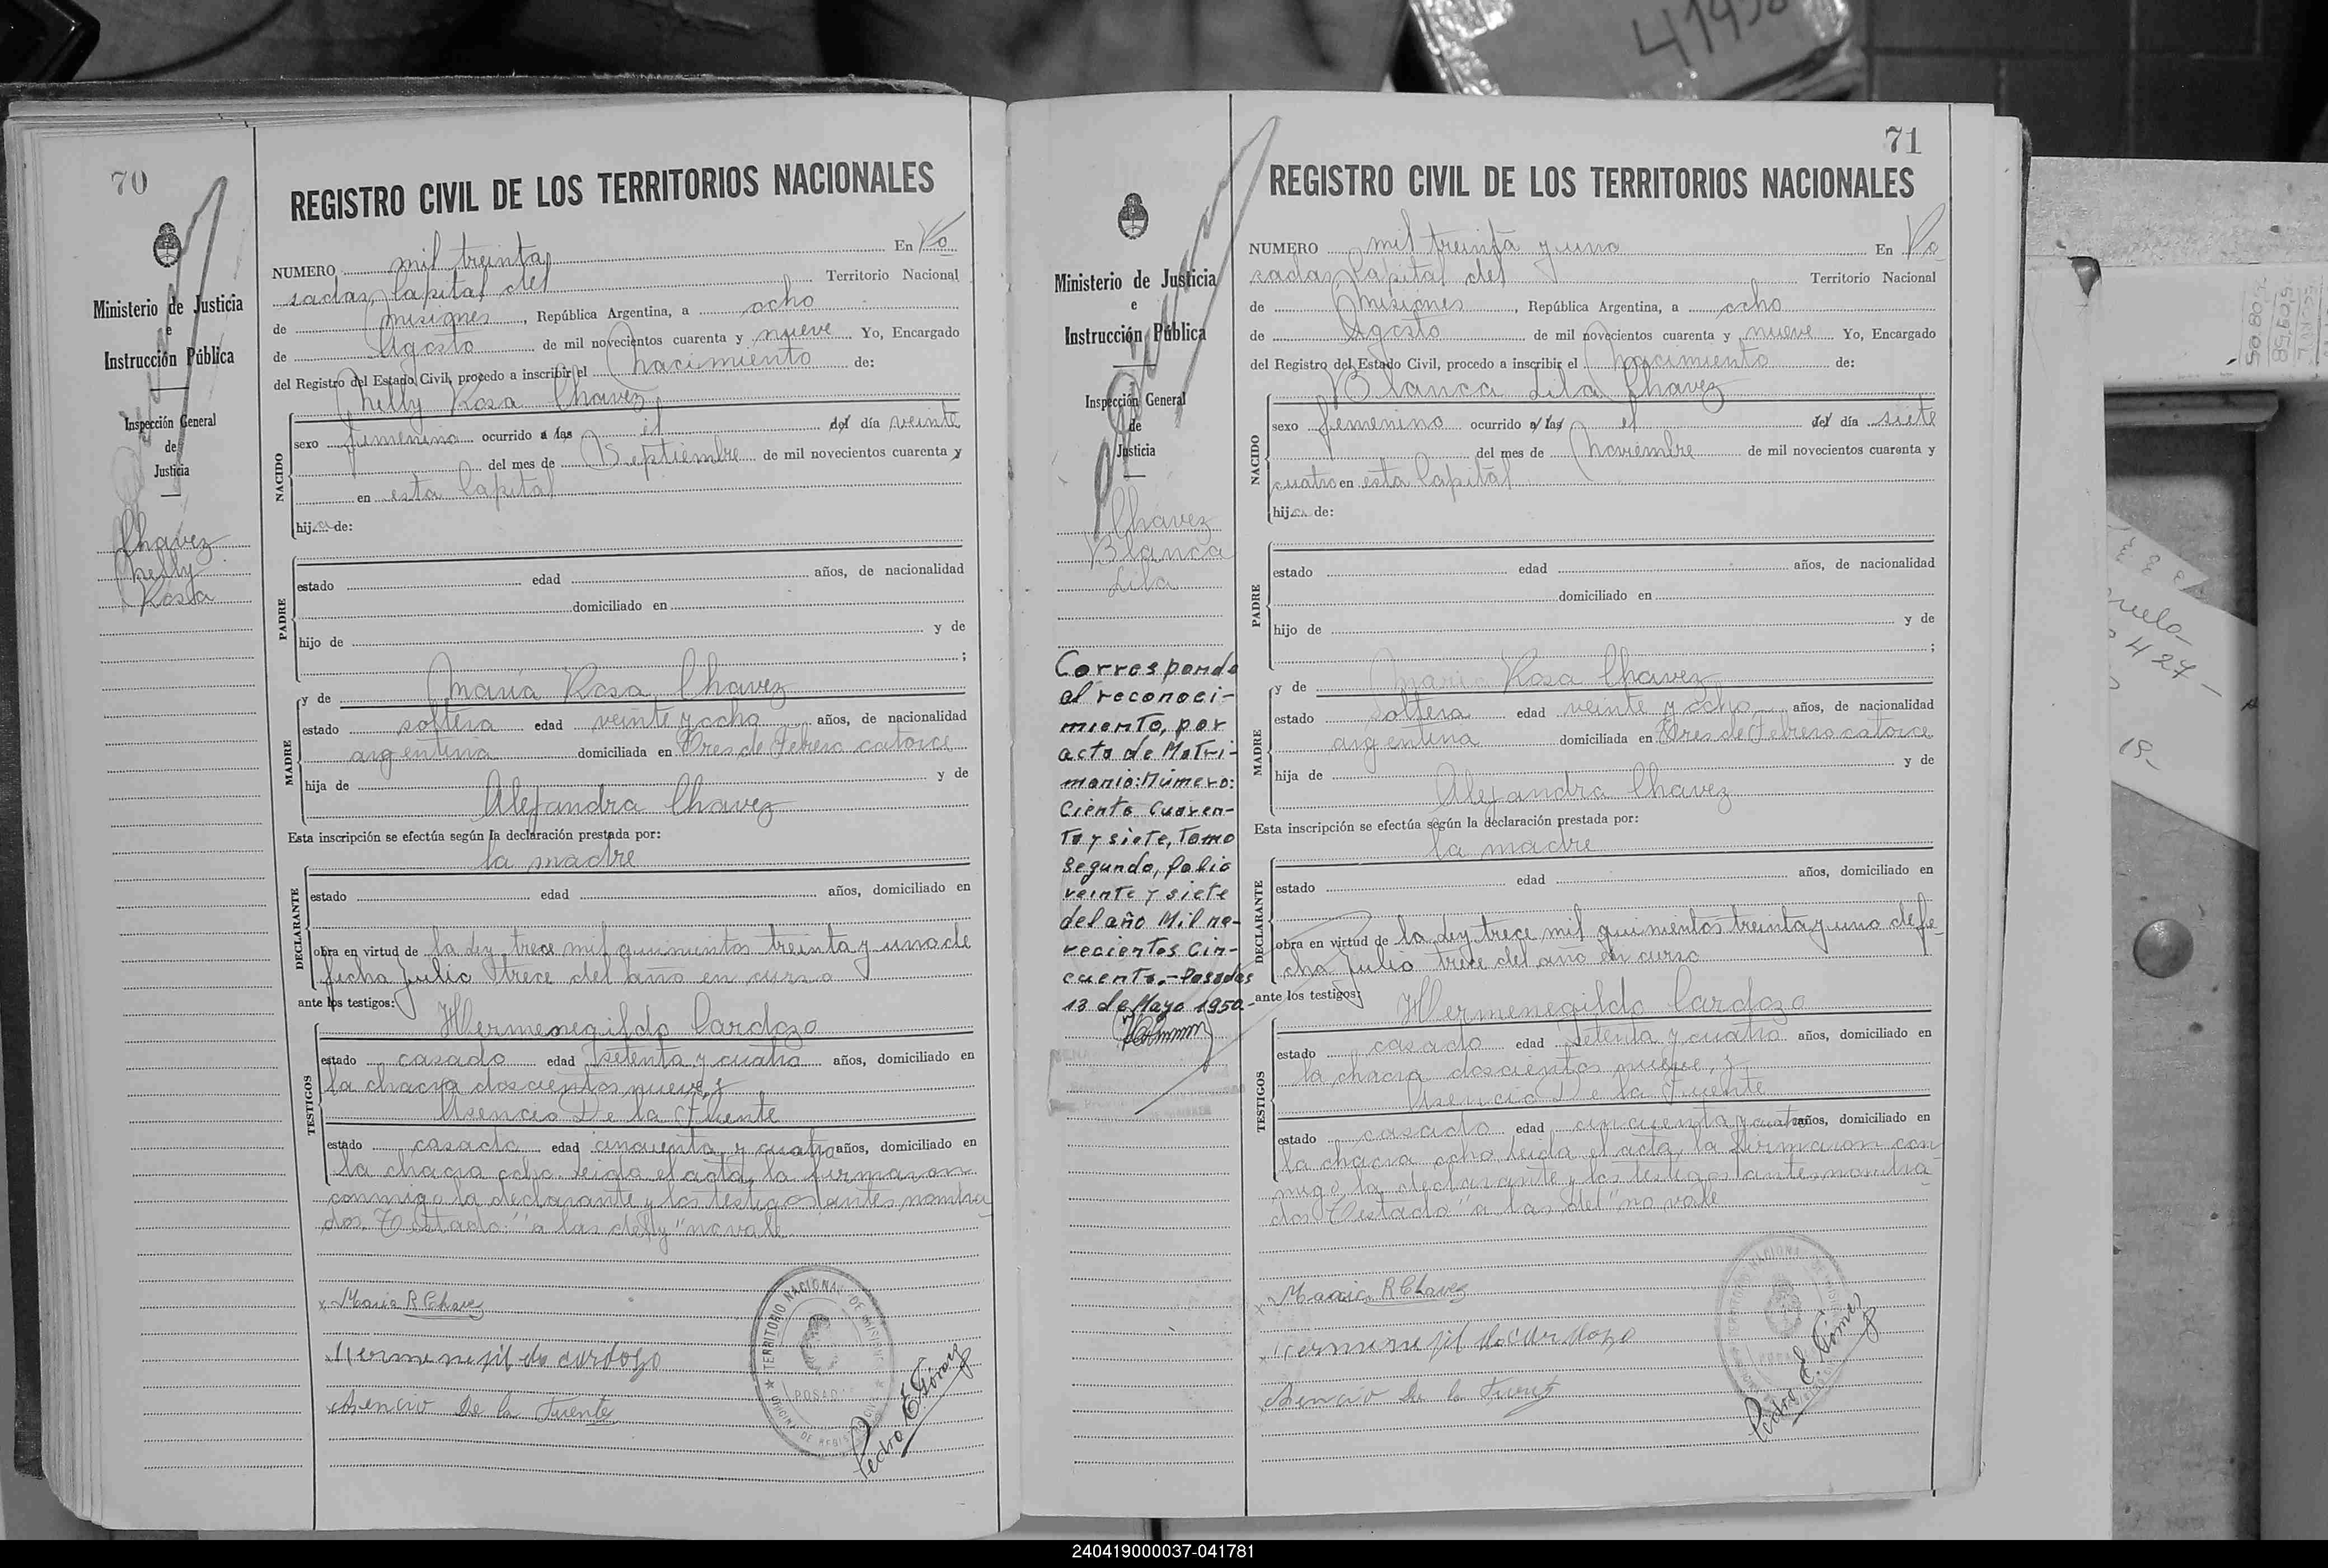 41950
70
Ministerio de Justicia
e
Instrucción Pública
Inspección General
de
Justicia
Chavez
Nelly
Rosa
REGISTRO CIVIL DE LOS TERRITORIOS NACIONALES
NUMERO mil treinta En Po
sadas, Capital del Territorio Nacional
de Misiones, República Argentina, a ocho
de Agosto de mil novecientos cuarenta y nueve Yo, Encargado
del Registro del Estado Civil, procedo a inscribir el nacimiento de:
Nelly Rosa Chavez
NACIDO
sexo femenino ocurrido a las el del día veinte
del mes de Septiembre de mil novecientos cuarenta y
en esta Capital
hija de:
PADRE
estado edad años, de nacionalidad
domiciliado en
hijo de y de
;
MADRE
y de María Rosa Chavez
estado soltera edad veinte y ocho años, de nacionalidad
argentina domiciliada en Tres de Febrero catorce
hija de y de
Alejandra Chavez
Esta inscripción se efectúa según la declaración prestada por:
la madre
DECLARANTE
estado edad años, domiciliado en
obra en virtud de la ley trece mil quinientos treinta y uno de
fecha Julio trece del año en curso
ante los testigos:
Hermenegildo Cardozo
TESTIGOS
estado casado edad setenta y cuatro años, domiciliado en
la chacra doscientos nueve, y
Asencio De la Fuente
estado casado edad cincuenta y cuatro años, domiciliado en
la chacra ocho. Leida el acta, la firmaron
conmigo la declarante y los testigos antes nombra
dos. Testado: "a las del y" no vale.
x Maria R Chavez
Hermenejildo cardozo
Asencio De la Fuente
TERRITORIO NACIONAL DE MISIONES
POSADAS
OFICINA DE REGISTRO CIVIL
Pedro E. Gómez
71
Ministerio de Justicia
e
Instrucción Pública
Inspección General
de
Justicia
Chavez
Blanca
Lila
Corresponde
al reconoci-
miento, por
acta de Matri-
monio: Número:
Ciento Cuaren-
ta y siete, Tomo
Segundo, folio
veinte y siete
del año Mil no-
vecientos Cin-
cuenta.- Posadas
13 de Mayo 1950-
REGISTRO CIVIL DE LOS TERRITORIOS NACIONALES
NUMERO mil treinta y uno En Po
sadas, Capital del Territorio Nacional
de Misiones, República Argentina, a ocho
de Agosto de mil novecientos cuarenta y nueve Yo, Encargado
del Registro del Estado Civil, procedo a inscribir el nacimiento de:
Blanca Lila Chavez
NACIDO
sexo femenino ocurrido a las el del día siete
del mes de Noviembre de mil novecientos cuarenta y
cuatro en esta Capital
hija de:
PADRE
estado edad años, de nacionalidad
domiciliado en
hijo de y de
;
MADRE
y de María Rosa Chavez
estado soltera edad veinte y ocho años, de nacionalidad
argentina domiciliada en Tres de Febrero catorce
hija de y de
Alejandra Chavez
Esta inscripción se efectúa según la declaración prestada por:
la madre
DECLARANTE
estado edad años, domiciliado en
obra en virtud de la ley trece mil quinientos treinta y uno de fe-
cha Julio trece del año en curso
ante los testigos:
Hermenegildo Cardozo
TESTIGOS
estado casado edad setenta y cuatro años, domiciliado en
la chacra doscientos nueve, y
Asencio De la Fuente
estado casado edad cincuenta y cuatro años, domiciliado en
la chacra ocho. Leida el acta, la firmaron con
migo la declarante y los testigos antes nombra-
dos. Testado "a las del" no vale
x Maria R Chavez
Hermenejildo Cardozo
Asencio De la Fuente
TERRITORIO NACIONAL DE MISIONES
POSADAS
Pedro E. Gómez
424
19-
240419000037-041781